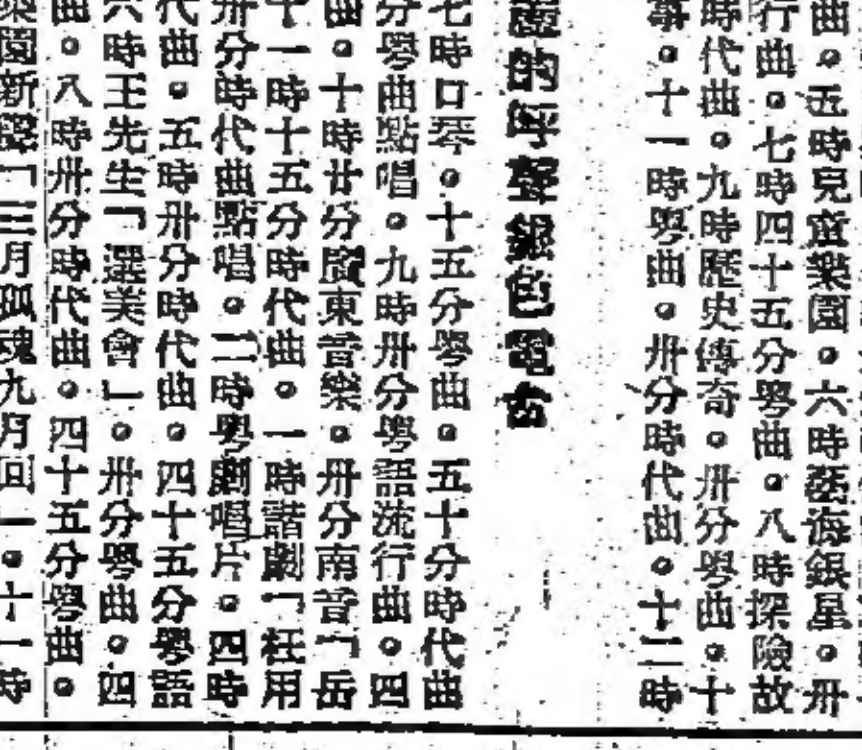 曲。五時兒童樂園。六時藝海銀星。卅
行曲。七時四十五分粤曲。八時探險故
時代曲。九時歷史傳奇。卅分粤曲。十
事。十一時粤曲。卅分時代曲。十二時
的呼聲銀色電台
七時口琴。十五分粤曲。五十分時代曲
分粤曲點唱。九時卅分粤語流行曲。四
曲。十時廿分廣東音樂。卅分南音「岳
十一時十五分時代曲。一時諧劇「枉用
卅分時代曲點唱。二時粤劇唱片。四時
代曲。五時卅分時代曲。四十五分粤語
六時王先生「選美會」。卅分粤曲。四
曲。八時卅分時代曲。四十五分粤曲。
樂園新聲「三月孤魂九月回」。十一時